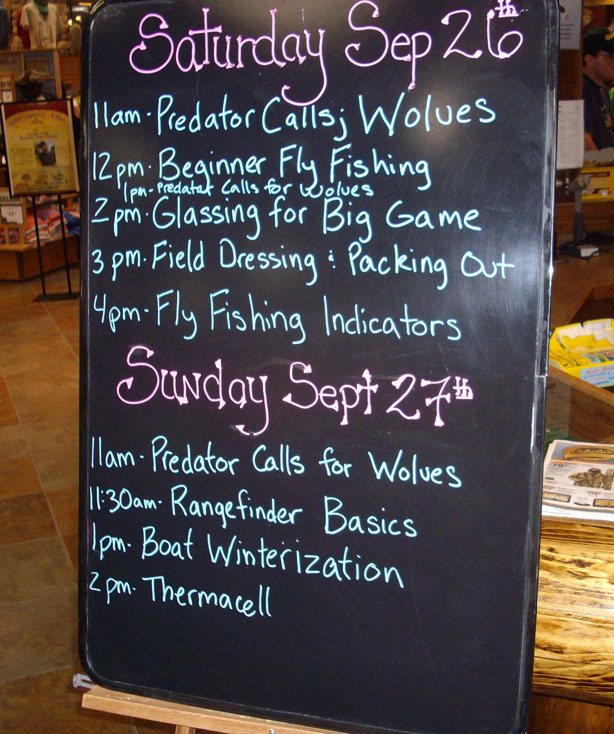 Saturday Sep 26th
11am - Predator Calls; Wolves
12pm - Beginner Fly Fishing
1pm - Predator Calls for Wolves
2pm - Glassing for Big Game
3pm - Field Dressing & Packing Out
4pm - Fly Fishing Indicators
Sunday Sept 27th
11am - Predator Calls for Wolves
11:30am - Rangefinder Basics
1pm - Boat Winterization
2pm - Thermacell